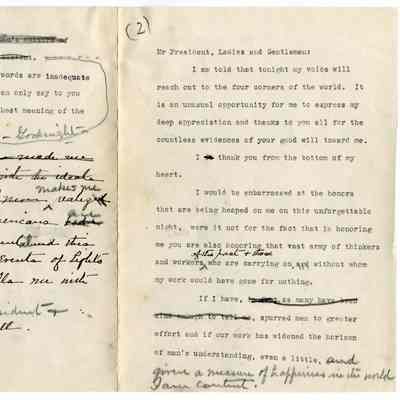 words are inadequate
can only say to you
best meaning of the
Goodnight
made me
the ideals
makes me
realize
are
this
Events of lights
me with
(2)
Mr President, Ladies and Gentlemen:
I am told that tonight my voice will
reach out to the four corners of the world. It
is an unusual opportunity for me to express my
deep appreciation and thanks to you all for the
countless evidences of your good will toward me.
I thank you from the bottom of my
heart.
I would be embarrassed at the honors
that are being heaped on me on this unforgettable
night, were it not for the fact that in honoring
me you are also honoring that vast army of thinkers
of the past + those
and workers who are carrying on, without whom
my work would have gone for nothing.
If I have, to what so many have been
kind enough to tell me, spurred men to greater
effort and if our work has widened the horizon
of man's understanding, even a little, and
given a measure of happiness in the world
I am content.